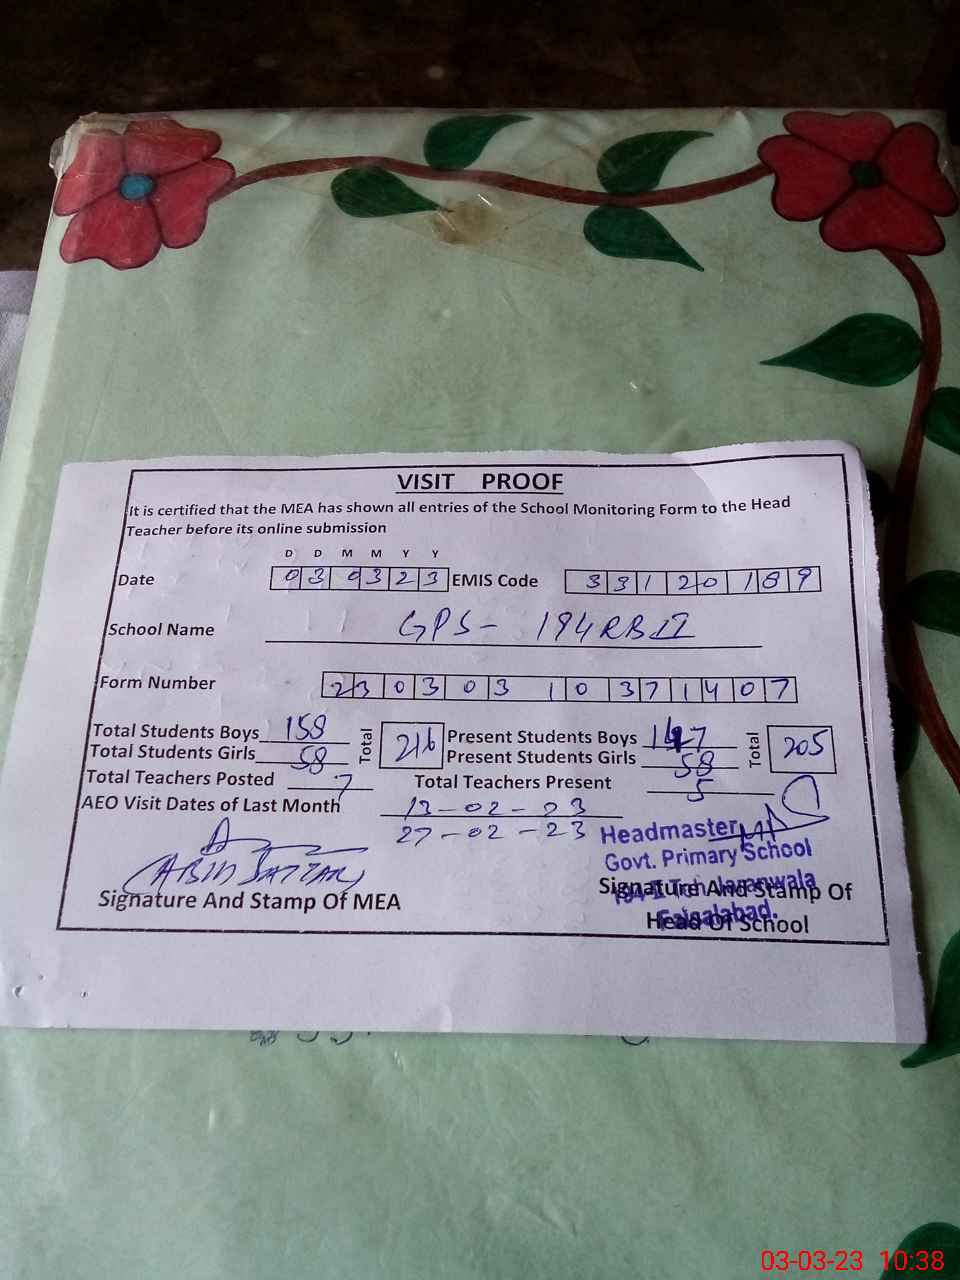 VISIT PROOF
It is certified that the MEA has shown all entries of the School Monitoring Form to the Head
Teacher before its online submission
D D M M Y Y
Date 03 03 23 EMIS Code 33120189
School Name GPS- 194RB II
Form Number 230303 1037 1407
Total Students Boys 158 Total 216 Present Students Boys 147 Total 205
Total Students Girls 58 Present Students Girls 58
Total Teachers Posted 7 Total Teachers Present 5
AEO Visit Dates of Last Month 13-02-23
27-02-23
Headmaster
Govt. Primary School
Faisalabad.
Signature And Stamp Of MEA
Signature And Stamp Of
Head Of School
03-03-23 10:38